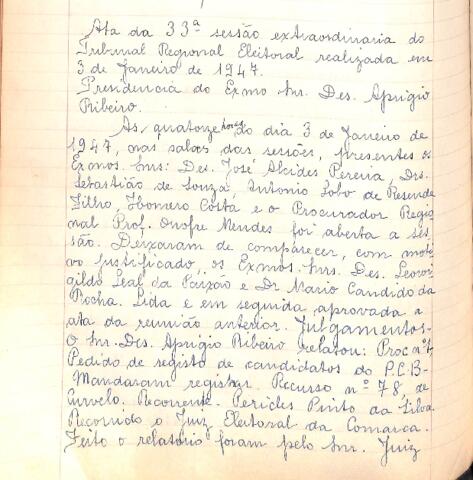 Ata da 33ª sessão extraordinaria do
Tribunal Regional Eleitoral realizada em
3 de Janeiro de 1947.
Presidencia do Exmo Snr. Des. Aprigio
Ribeiro.
As quatorze horas do dia 3 de Janeiro de
1947, nas salas das sessões, presentes os
Exmos. Snrs: Des. José Alcides Pereira, Drs.
Sebastião de Souza, Antonio Lobo de Resende
Filho, Costa e o Procurador Regio
nal Prof. Onofre Mendes foi aberta a ses
são. Deixaram de comparecer, com moti
vo justificado, os Exmos. Snrs. Des. Leovi
gildo Leal da Paixão e Dr Mario Candido da
Rocha. Lida e em seguida aprovada a
ata da reunião anterior. Julgamentos-
O Snr. Des. Aprigio Ribeiro relatou: Proc nº
Pedido de registo de candidatos do P.C.B-
Mandaram registrar. Recurso nº 78, de
Curvelo. Recorrente. Pericles Pinto da Silva.
Recorrido o Juiz Eleitoral da Comarca.
Feito o relatorio foram pelo Snr. Juiz